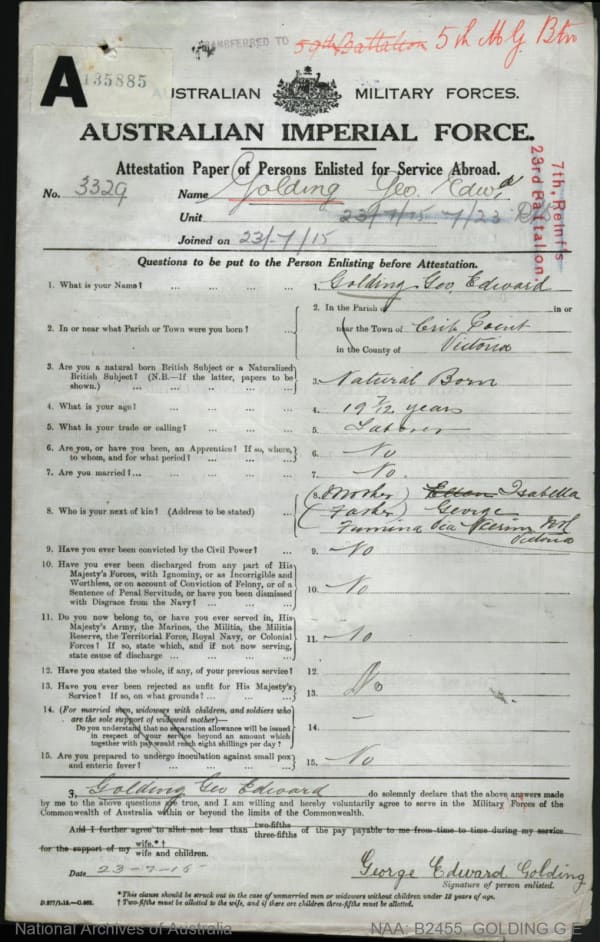 TRANSFERRED TO 59th Battalion 5th M.G. Btn
A 135885
AUSTRALIAN MILITARY FORCES.
AUSTRALIAN IMPERIAL FORCE.
Attestation Paper of Persons Enlisted for Service Abroad.
No. 3329 Name Golding Geo. Edwd
Unit 23/7/15 7/23
Joined on 23/7/15
7th, Reinf'ts
23rd Battalion.
Questions to be put to the Person Enlisting before Attestation.
1. What is your Name? ... ... ... 1. Golding Geo. Edward
2. In or near what Parish or Town were you born? ... 2. In the Parish of in or
near the Town of Crib Point
in the County of Victoria
3. Are you a natural born British Subject or a Naturalized
British Subject? (N.B.—If the latter, papers to be
shown.) ... ... ... ... 3. Natural Born
4. What is your age? ... ... ... 4. 19 7/12 years
5. What is your trade or calling? ... ... 5. Laborer
6. Are you, or have you been, an Apprentice? If so, where,
to whom, and for what period? ... ... 6. No
7. Are you married? ... ... ... 7. No.
8. Who is your next of kin? (Address to be stated) ... 8. (Mother) Ellen Isabella
(Father) George
Fumina Via Neerim Nth
Victoria
9. Have you ever been convicted by the Civil Power? ... 9. No
10. Have you ever been discharged from any part of His
Majesty's Forces, with Ignominy, or as Incorrigible and
Worthless, or on account of Conviction of Felony, or of a
Sentence of Penal Servitude, or have you been dismissed
with Disgrace from the Navy? ... ... 10. No
11. Do you now belong to, or have you ever served in, His
Majesty's Army, the Marines, the Militia, the Militia
Reserve, the Territorial Force, Royal Navy, or Colonial
Forces? If so, state which, and if not now serving,
state cause of discharge ... ... ... 11. No
12. Have you stated the whole, if any, of your previous service? 12.
13. Have you ever been rejected as unfit for His Majesty's
Service? If so, on what grounds? ... ... 13. No
14. (For married men, widowers with children, and soldiers who
are the sole support of widowed mother)—
Do you understand that no separation allowance will be issued
in respect of your service beyond an amount which
together with pay would reach eight shillings per day? 14. —
15. Are you prepared to undergo inoculation against small pox
and enteric fever? ... ... ... 15. No
I, Golding Geo Edward do solemnly declare that the above answers made
by me to the above questions are true, and I am willing and hereby voluntarily agree to serve in the Military Forces of the
Commonwealth of Australia within or beyond the limits of the Commonwealth.
And I further agree to allot not less than two-fifths three-fifths of the pay payable to me from time to time during my service
for the support of my wife.*† wife and children.
Date 23-7-15
George Edward Golding
Signature of person enlisted.
*This clause should be struck out in the case of unmarried men or widowers without children under 18 years of age.
† Two-fifths must be allotted to the wife, and if there are children three-fifths must be allotted.
National Archives of Australia NAA: B2455, GOLDING G E